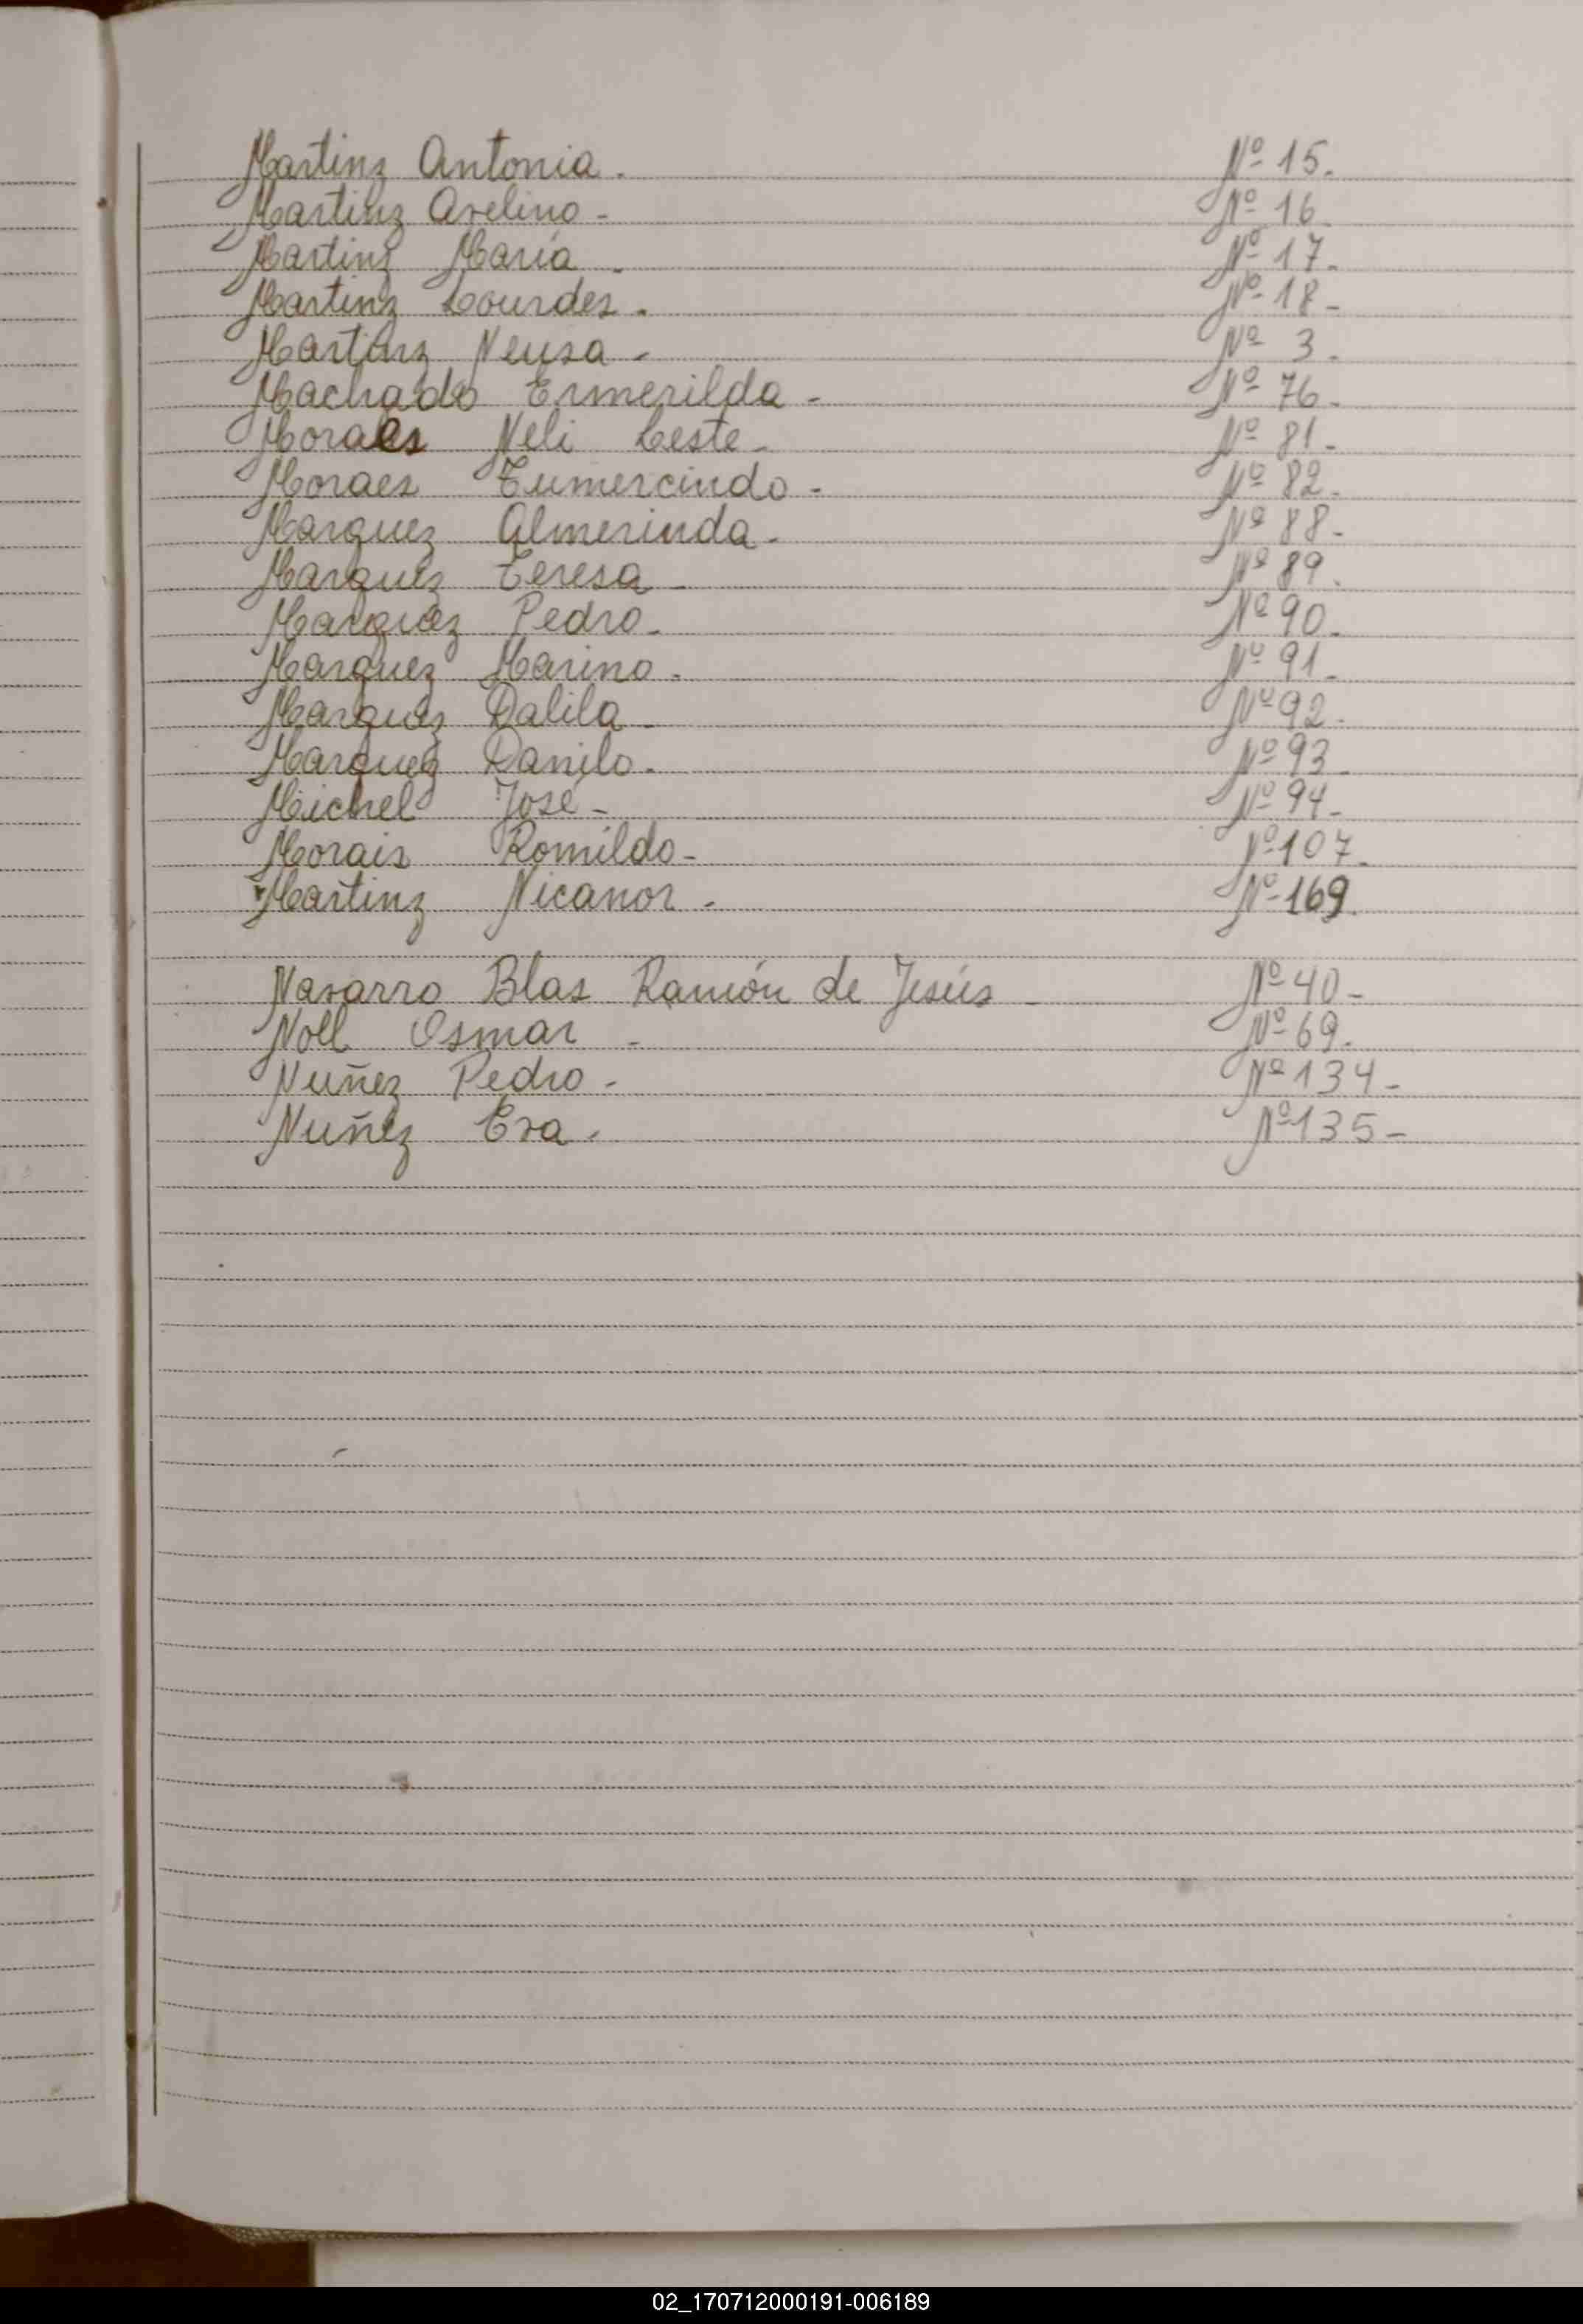 Martinz Antonia. Nº 15.
Martinz Avelino - Nº 16.
Martinz María . Nº 17.
Martinz Lourdes. Nº 18 -
Martinz Neusa - Nº 3.
Machado Ermerilda - Nº 76.
Moraes Neli Ceste - Nº 81 -
Moraes Tumercindo - Nº 82.
Marquez Almerinda. Nº 88 -
Marquez Teresa - Nº 89.
Marquez Pedro. Nº 90.
Marquez Marino. Nº 91 -
Marquez Dalila - Nº 92.
Marquez Danilo. Nº 93 -
Michel José - Nº 94 -
Morais Romildo - Nº 107.
Martinz Nicanor - Nº 169.
Navarro Blas Ramón de Jesús - Nº 40 -
Noll Osmar - Nº 69.
Nuñez Pedro - Nº 134 -
Nuñez Eva - Nº 135 -
02_170712000191-006189